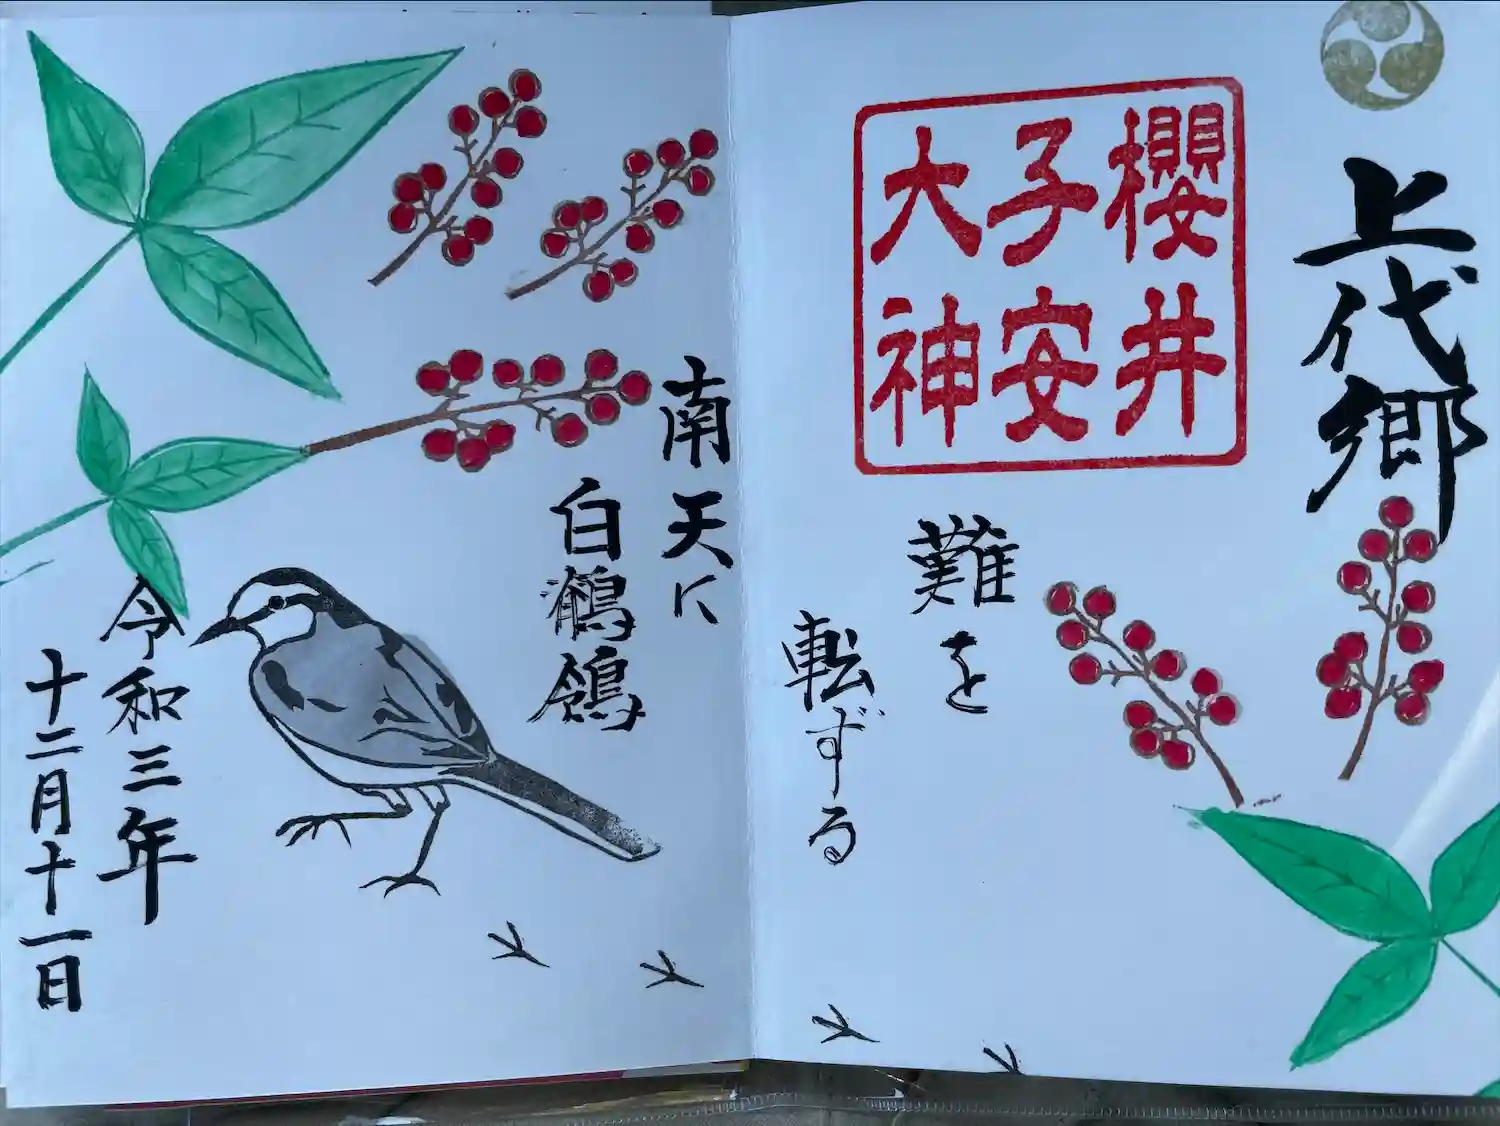 上代郷
櫻井
子安
大神
難を
転ずる
南天に
白鶺鴒
令和三年
十二月十一日